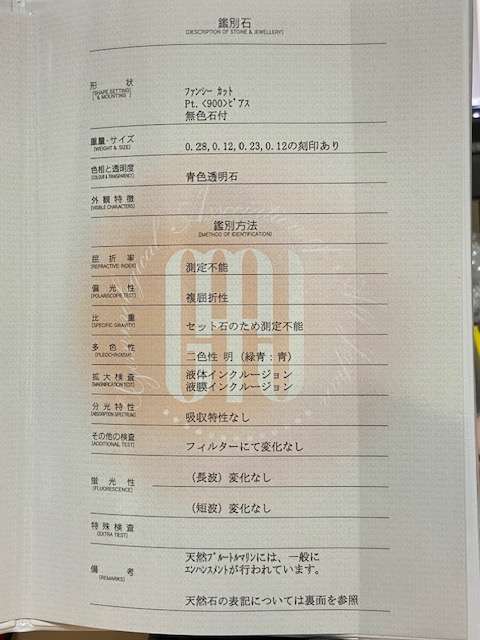 鑑別石
(DESCRIPTION OF STONE & JEWELLERY)
形 状
(SHAPE SETTING & MOUNTING)
ﾌｧﾝｼｰ ｶｯﾄ
Pt.<900>ﾋﾟｱｽ
無色石付
重量・サイズ
(WEIGHT & SIZE)
0.28,0.12,0.23,0.12の刻印あり
色相と透明度
(COLOUR & TRANSPARENCY)
青色透明石
外観特徴
(VISIBLE CHARACTERS)
鑑別方法
(METHOD OF IDENTIFICATION)
屈折率
(REFRACTIVE INDEX)
測定不能
偏光性
(POLARISCOPE TEST)
複屈折性
比 重
(SPECIFIC GRAVITY)
セット石のため測定不能
多色性
(PLEOCHROISM)
二色性 明 (緑青：青)
拡大検査
(MAGNIFICATION TEST)
液体インクルージョン
液膜インクルージョン
分光特性
(ABSORPTION SPECTRUM)
吸収特性なし
その他の検査
(ADDITIONAL TEST)
フィルターにて変化なし
蛍光性
(FLUORESCENCE)
(長波) 変化なし
(短波) 変化なし
特殊検査
(EXTRA TEST)
備 考
(REMARKS)
天然ﾌﾞﾙｰﾄﾙﾏﾘﾝには、一般に
ｴﾝﾊﾝｽﾒﾝﾄが行われています。
天然石の表記については裏面を参照